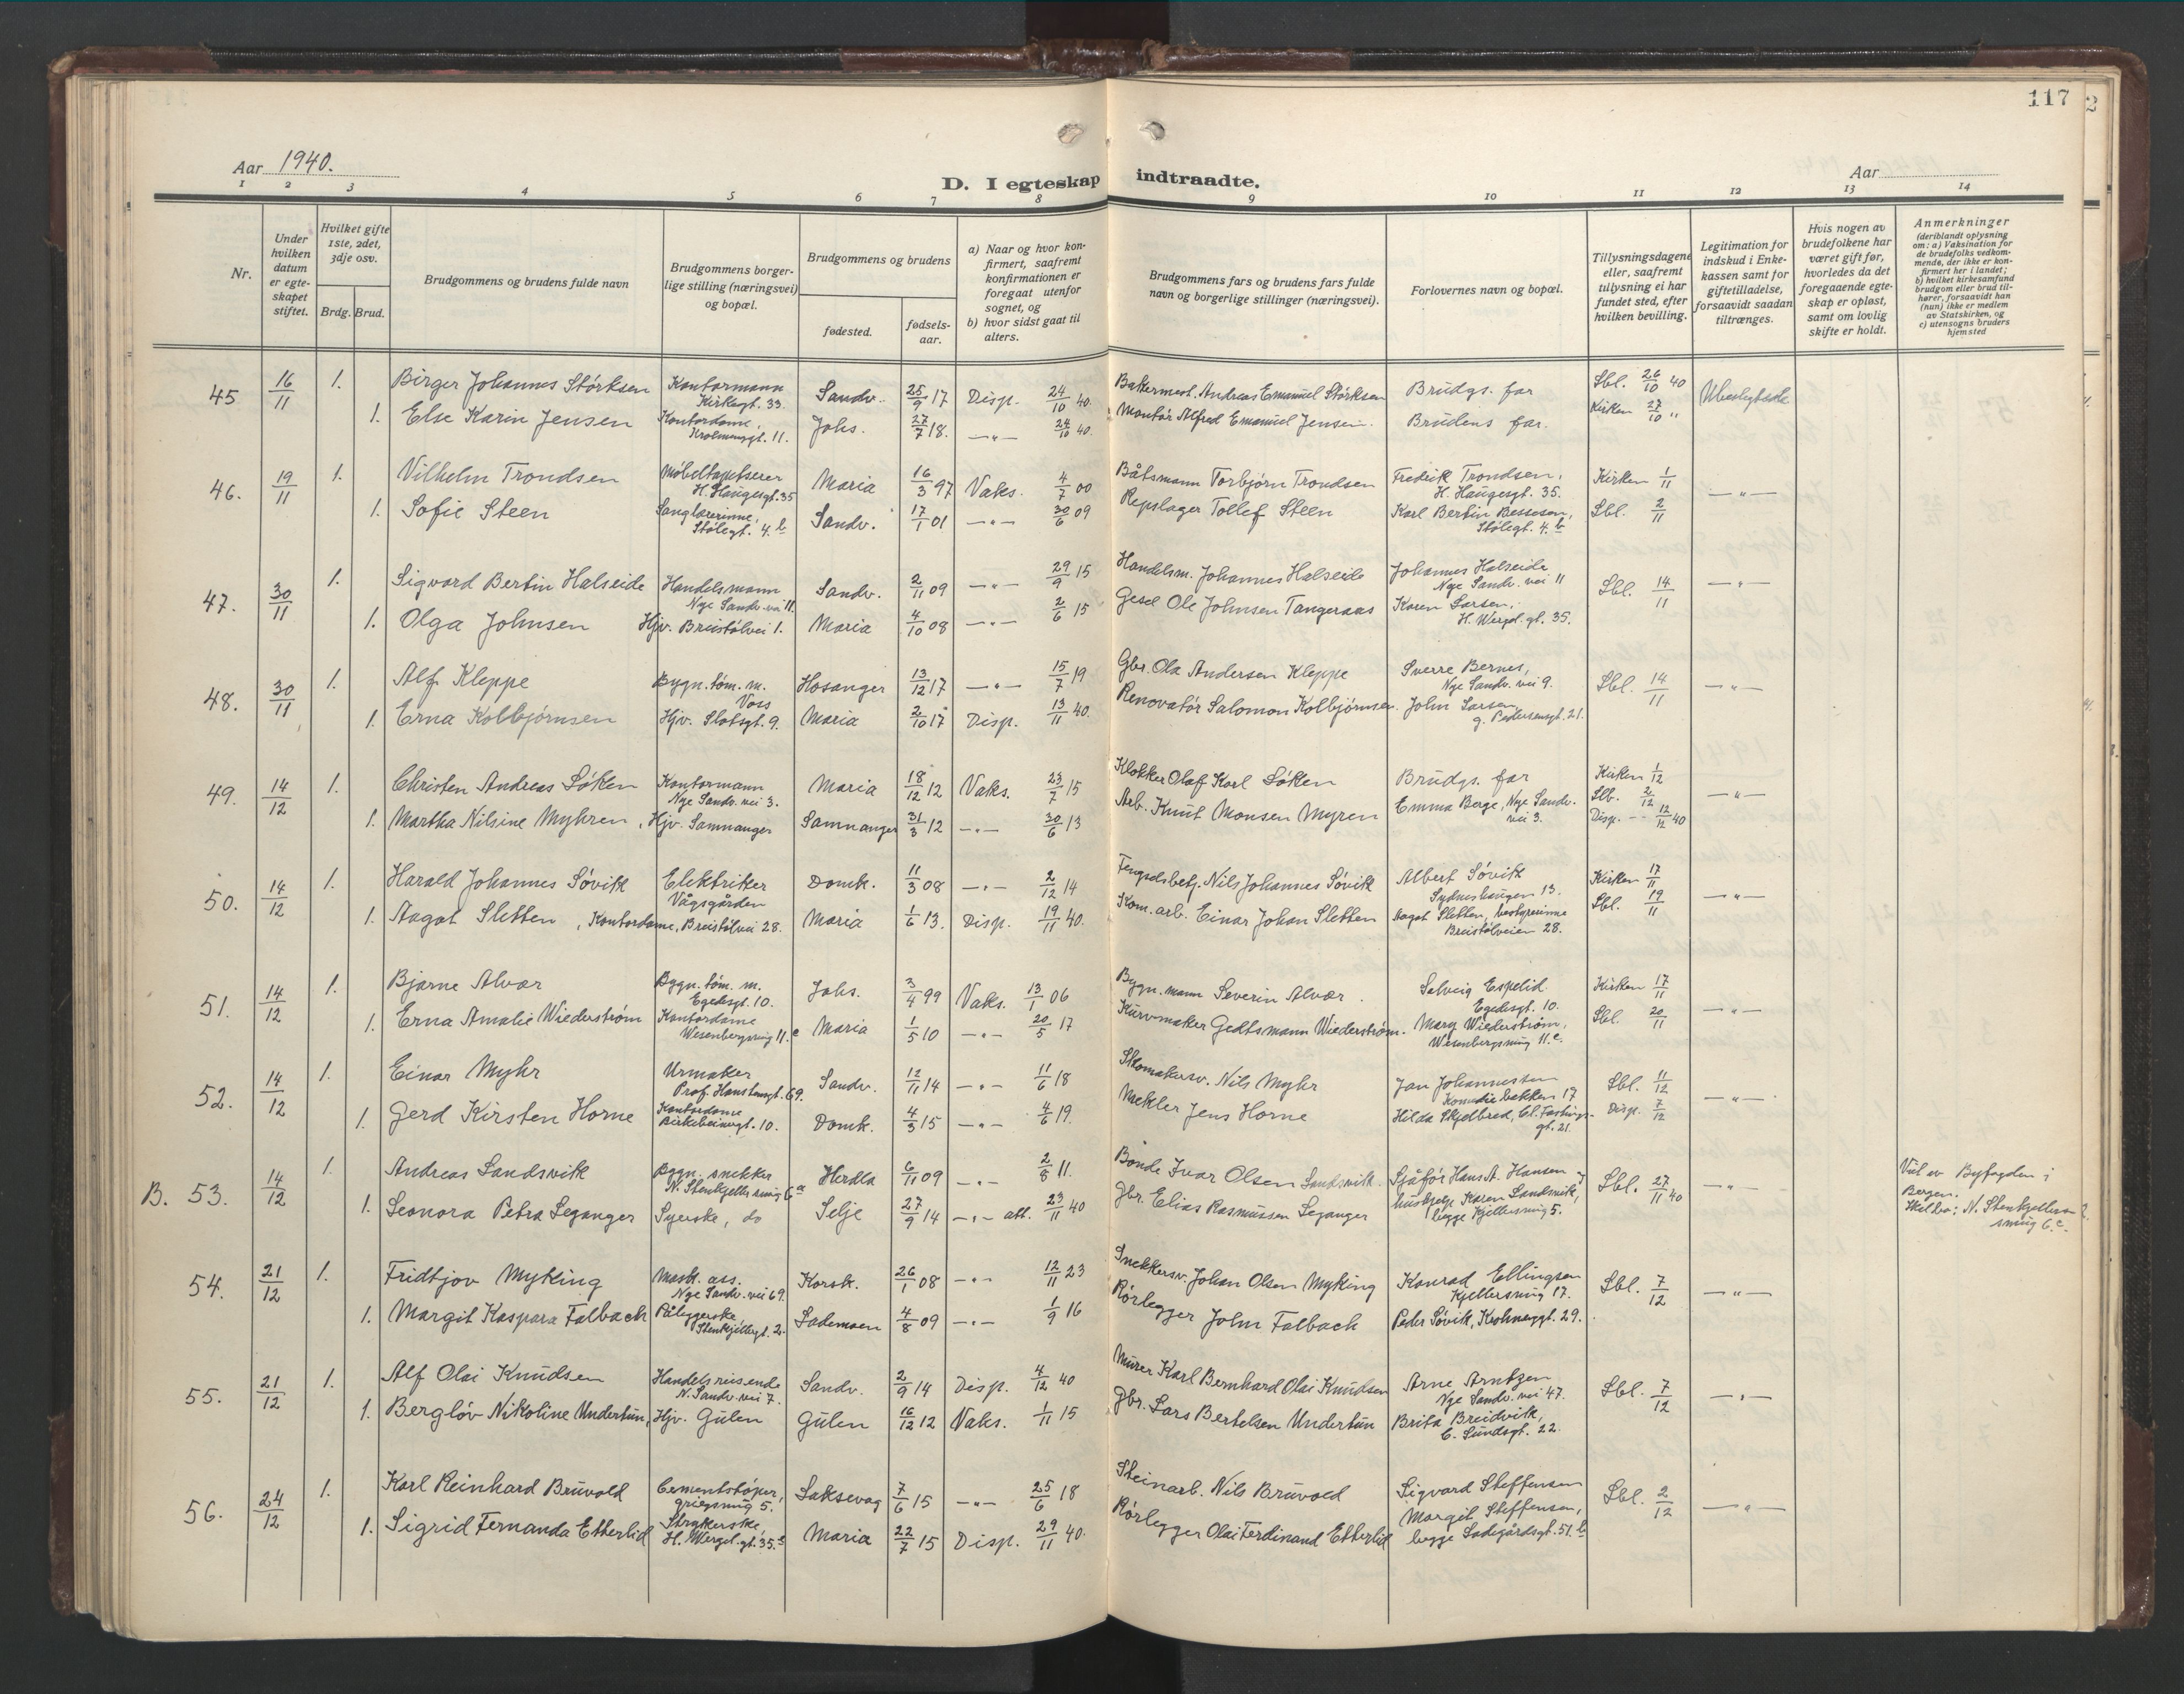 117
2
Aar 1940.
D. I egteskap indtraadte.
Aar
1 2 3 4 5 6 7 8 9 10 11 12 13 14
Nr.
Under hvilken datum er egteskapet stiftet.
Hvilket gifte 1ste, 2det, 3dje osv.
Brdg. Brud.
Brudgommens og brudens fulde navn
Brudgommens borgerlige stilling (næringsvei) og bopæl.
Brudgommens og brudens
fødested.
fødselsaar.
a) Naar og hvor konfirmert, saafremt konfirmationen er foregaat utenfor sognet, og
b) hvor sidst gaat til alters.
Brudgommens fars og brudens fars fulde navn og borgerlige stillinger (næringsvei).
Forlovernes navn og bopæl.
Tillysningsdagene eller, saafremt tillysning ei har fundet sted, efter hvilken bevilling.
Legitimation for indskud i Enkekassen samt for giftetilladelse, forsaavidt saadan tiltrænges.
Hvis nogen av brudefolkene har været gift før, hvorledes da det foregaaende egteskap er opløst, samt om lovlig skifte er holdt.
Anmerkninger
(deriblandt oplysning om: a) Vaksination for de brudefolks vedkommende, der ikke er konfirmert her i landet; b) hvilket kirkesamfund brudgom eller brud tilhører, forsaavidt han (hun) ikke er medlem av Statskirken, og c) utensogns bruders hjemsted
45 16/11 1. Birger Johannes Størksen Kontormann Kirkegt. 33. Sandv. 25/9 17 Disp. 24/10 40. Bakermest. Andreas Emanuel Størksen Brudgs. far Sbl. 26/10 40
1. Else Karin Jensen Kontordame, Krohnengt. 11. Johs. 27/7 18. —"— 24/10 40. Montør Alfred Emanuel Jensen. Brudens far. Kirken 27/10 "
46. 19/11 1. Vilhelm Trondsen Møbeltapetserer H. Haugesgt. 35 Maria 16/3 97 Vaks. 4/7 00 Båtsmann Torbjørn Trondsen Fredrik Trondsen, H. Haugesgt. 35. Kirken 1/11 —"—
1. Sofie Steen Sanglærerinne, Stølegt. 4.b Sandv. 17/1 01 —"— 30/6 09 Repslager Tollef Steen Karl Bertin Bessesen, Stølegt. 4.b Sbl. 2/11
47. 30/11 1. Sigvard Bertin Halseide Handelsmann Nye Sandv. vei 11. Sandv. 2/11 09 —"— 29/9 15 Handelsm. Johannes Halseide Johannes Halseide Nye Sandv. vei 11 Sbl. 14/11 —"—
1. Olga Johnsen Hjv. Breistølvei 1. Maria 4/10 08 —"— 2/6 15 Gesel Ole Johnsen Tangeraas Karen Larsen, H. Wergel. gt. 35.
48. 30/11 1. Alf Kleppe Bygn. tøm. m. Voss Hosanger 13/12 17 —"— 15/7 19 Gbr. Ola Andersen Kleppe Sverre Bernes, Nye Sandv. vei 9. Sbl. 14/11 —"—
1. Erna Kolbjørnsen Hjv. Slotsgt. 9. Maria 2/10 17 Disp. 13/11 40. Renovatør Salomon Kolbjørnsen. John Larsen, g. Pedersensgt. 21.
49. 14/12 1. Christen Andreas Løken Kontormann Nye Sandv. vei 3. Maria 18/12 12 Vaks. 23/7 15 Klokker Olaf Karl Løken Brudgs. far Kirken 1/12 —"—
1. Martha Nilsine Myhren, Hjv. Samnanger Samnanger 31/3 12 —"— 30/6 13 Arb. Knut Monsen Myren Emma Berge, Nye Sandv. vei 3. Slb. 2/12
Disp. 12/12 40
50. 14/12 1. Harald Johannes Søvik Elektriker Vågsgården Domk. 11/3 08 —"— 2/12 14 Fengselsbetj. Nils Johannes Søvik Albert Søvik Sydneshaugen 13. Kirken 17/11 —"—
1. Aagot Sletten, Kontordame, Breistølvei 28. Maria 1/6 13. Disp. 19/11 40. Kom. arb. Einar Johan Sletten Aagot Sletten, bestyrerinne Breistølveien 28. Sbl. 19/11
51. 14/12 1. Bjarne Alvær Bygn. tøm. m. Egedesgt. 10. Johs. 3/4 99 Vaks. 13/1 06 Bygn. mann Severin Alvær. Solveig Espelid Egedesgt. 10. Kirken 17/11 —"—
1. Erna Amalie Wiederstrøm Kontordame Wesenbergsmug 11.c Maria 1/5 10 —"— 20/5 17 Kurvmaker Gedtsmann Wiederstrøm. Mary Wiederstrøm, Wesenbergsmug 11.c. Sbl. 20/11
52. 14/12 1. Einar Myhr Urmaker Prof. Hansteensgt. 69. Sandv. 12/11 14 —"— 11/6 18 Skomakersv. Nils Myhr Jan Johannesten Komediebakken 17 Sbl. 11/12 —"—
1. Gerd Kirsten Horne Kontordame Birkebeinergt. 10. Domk. 4/3 15 —"— 4/6 19 Mekler Jens Horne Hilda Skjelbred, Cl. Fastings gt. 21. Disp. 7/12
B. 53. 14/12 1. Andreas Landsvik Bygn. snekker N. Stenkjellersmug 6a Herdla 6/11 09 —"— 2/8 11. Bonde Ivar Olsen Landsvik. Sjåfør Hans A. Hansen Sbl. 27/11 40 —"— Viet av Byfogden i Bergen.
1. Leonora Petra Leganger Syerske, do Selje 27/9 14 —"— att. 23/11 40 Gbr. Elias Rasmussen Leganger hushjelp Karen Landsvik, begge Kjellersmug 5. N. Stenkjellersmug 6.c.
54. 21/12 1. Fridtjov Myking Mask. ass. Nye Sandv. vei 69. Korsk. 26/1 08 —"— 12/11 23 Snekkersv. Johan Olsen Myking Konrad Ellingsen Kjellersmug 17. Sbl. 7/12 —"—
1. Margit Kaspara Falbach Påleggerske, Stenkjellergt. 2. Lademoen 4/8 09 —"— 1/9 16 Rørlegger John Falbach Peder Søvik, Krohnenggt. 29.
55. 21/12 1. Alf Olai Knudsen Handelsreisende N. Sandv. vei 7. Sandv. 2/9 14 Disp. 4/12 40 Murer Karl Bernhard Olai Knudsen Arne Arntzen Nye Sandv. vei 47. Sbl. 7/12 —"—
1. Bergløv Nikoline Undertun, Hjv. Gulen Gulen 16/12 12 Vaks. 1/11 15 Gbr. Lars Bertelsen Undertun Brita Breidvik, C. Sundsgt. 22.
56. 24/12 1. Karl Reinhard Bruvold Cementstøper, Griegsmug 5. Laksevåg 7/6 15 —"— 25/6 18 Steinarb. Nils Bruvold Sigvard Steffensen Sbl. 2/12 —"—
1. Sigrid Fernanda Etterlid Strykerske, H. Wergel. gt. 35.c Maria 22/7 15 Disp. 29/11 40. Rørlegger Olai Ferdinand Etterlid Margit Steffensen, begge Ladegårdsgt. 51.b